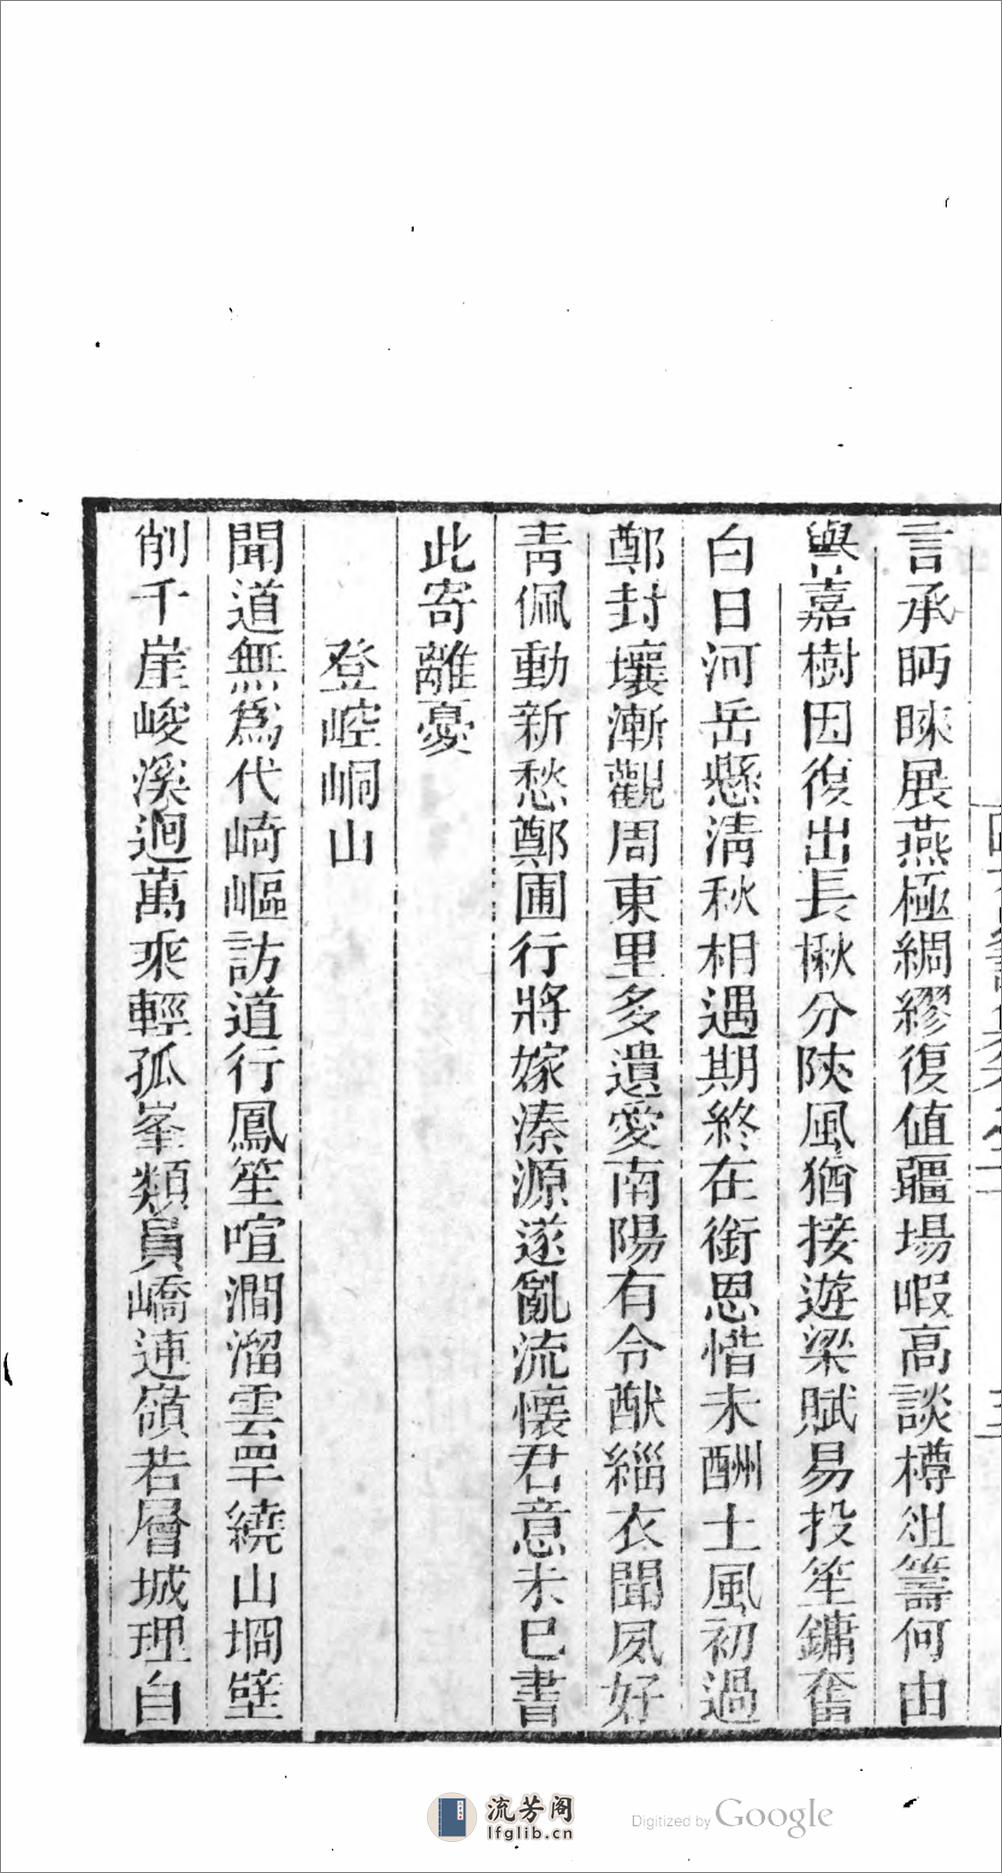 言承眄睞展燕極綢繆復值疆場暇高談樽俎籌何由
譽嘉樹因復出長楸分陝風猶接遊梁賦易投笙鏞奮
白日河岳懸清秋相遇期終在銜恩惜未酬土風初過
鄭封壤漸觀周東里多遺愛南陽有令猷緇衣聞夙好
青佩動新愁鄭圃行將嫁溱源遂亂流懷君意未已書
此寄離憂
登崆峒山
聞道無為代崎嶇訪道行鳳笙喧澗溜雲罕繞山坰壁
削千崖峻溪迴萬乘輕孤峯類員嶠連嶺若層城理自
流芳阁
lfglib.cn
Digitized by Google